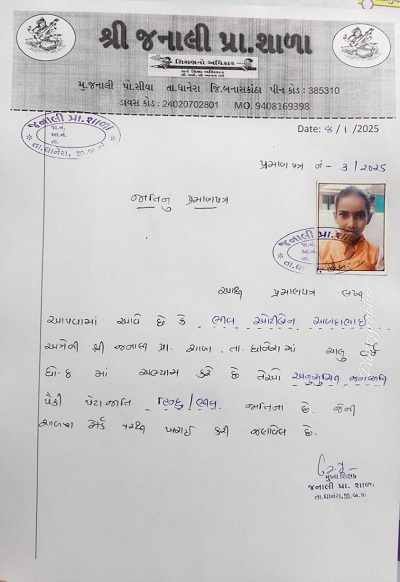 શ્રી જનાલી પ્રા.શાળા
શિક્ષણનો અધિકાર
સર્વ શિક્ષા અભિયાન
મુ.જનાલી પો.સીયા તા.ધાનેરા જિ.બનાસકાંઠા પીન કોડ : 385310
ડાયસ કોડ : 24020702801 MO. 9408169398
જનાલી પ્રા. શાળા
જા.નં.
આ.નં.
તા.
તા.ધાનેરા, જી.બ.કાં
Date: 8/1/2025
પ્રમાણપત્ર નં - 3/2025
જાતિનું પ્રમાણપત્ર
આથી પ્રમાણપત્ર લખી
આપવામાં આવે છે કે ભીલ
અત્રેની શ્રી જનાલી પ્રા. શાળા, તા.ધાનેરામાં ચાલુ વર્ષે
ધો-8 માં અભ્યાસ કરે છે તેઓ અનુસુચિત જનજાતિ
પૈકી પેટા જાતિ હિન્દુ/ભીલ. જાતિના છે. જેની
શાળાના ખરાઈ કરી છે.
મુખ્ય શિક્ષક
જનાલી પ્રા. શાળા
તા.ધાનેરા,જી.બ.કાં